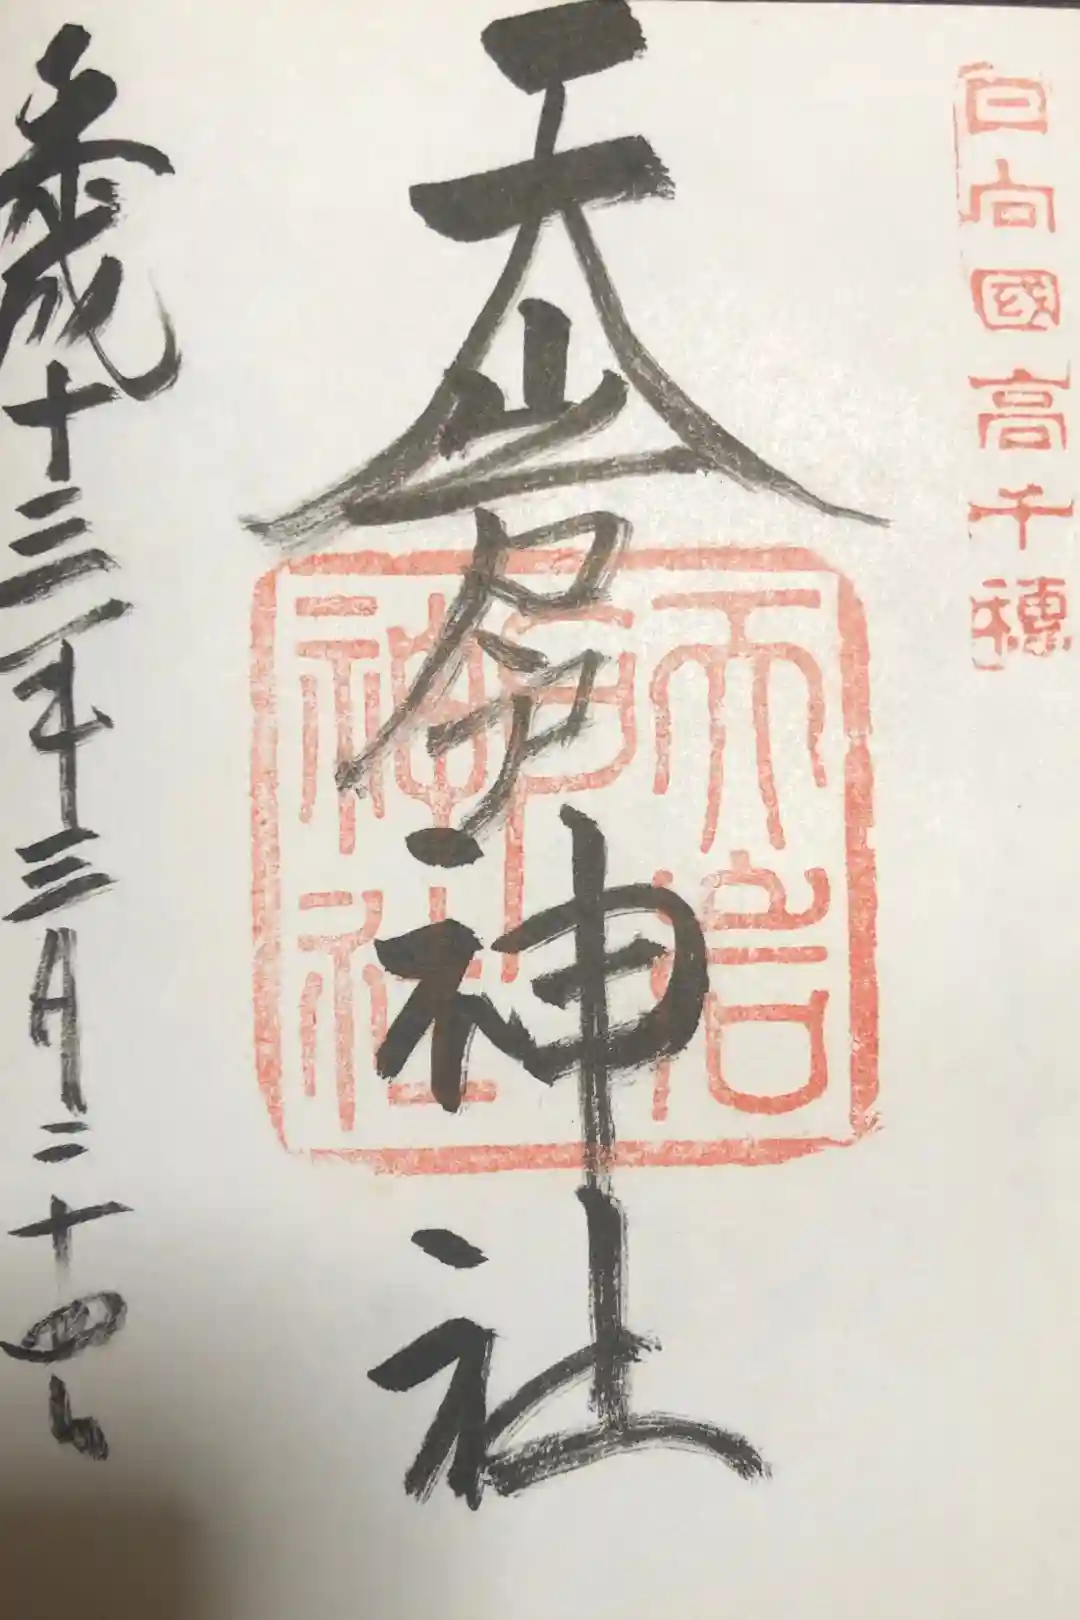 日向國高千穂
天岩戸神社
天岩戸神社
平成十三年三月二十四日